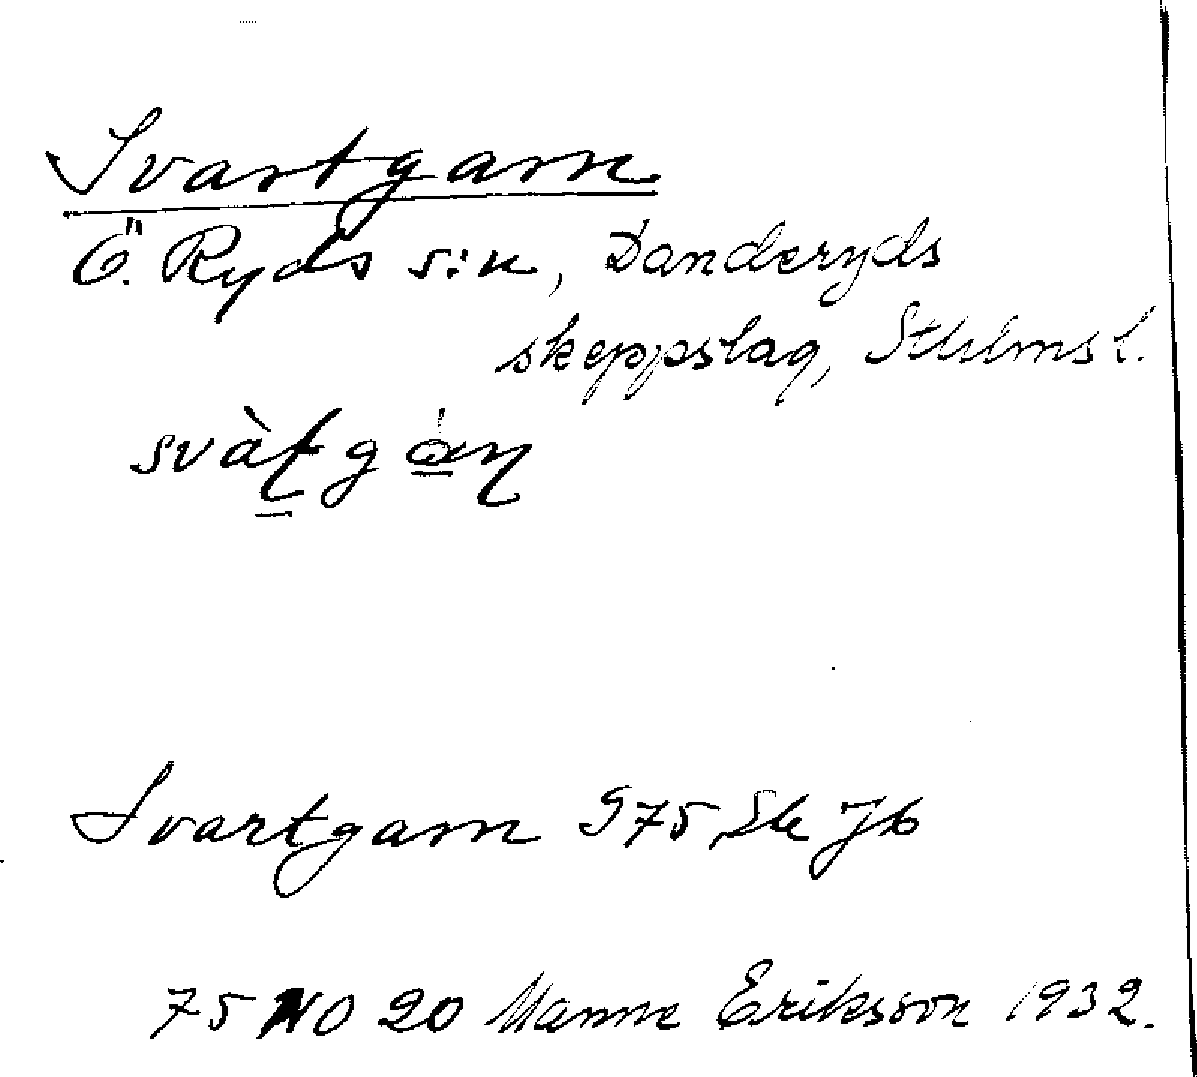 Svartgarn
Ö. Ryds s:n, Danderyds
skeppslag, Sthlms l.
Svartgarn G75, Sk Jb
75 NO 20 Manne Eriksson 1932.